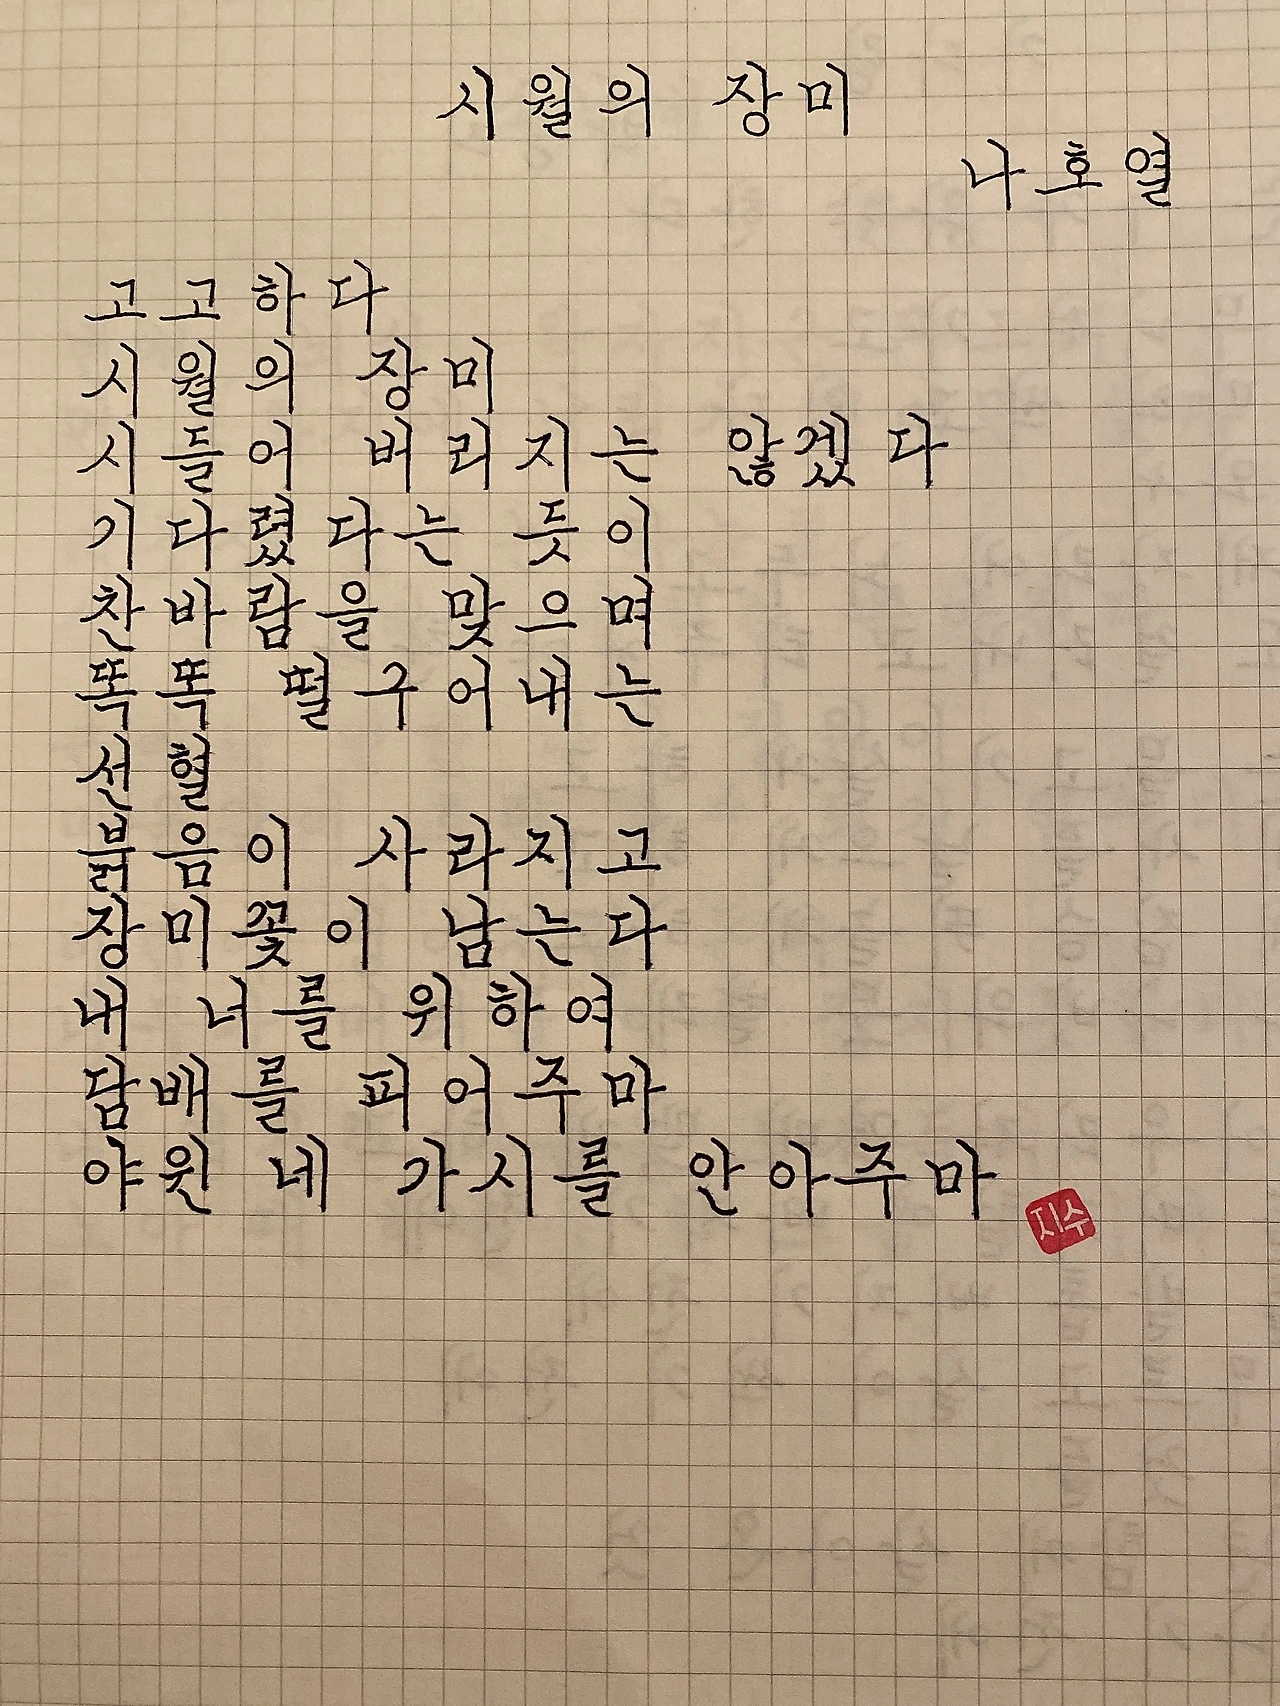 시월의 장미
나호열
고고하다
시월의 장미
시들어 버리지는 않겠다
기다렸다는 듯이
찬바람을 맞으며
똑똑 떨구어내는
선혈
붉음이 사라지고
장미꽃이 남는다
내 너를 위하여
담배를 피어주마
야윈 네 가시를 안아주마
지수